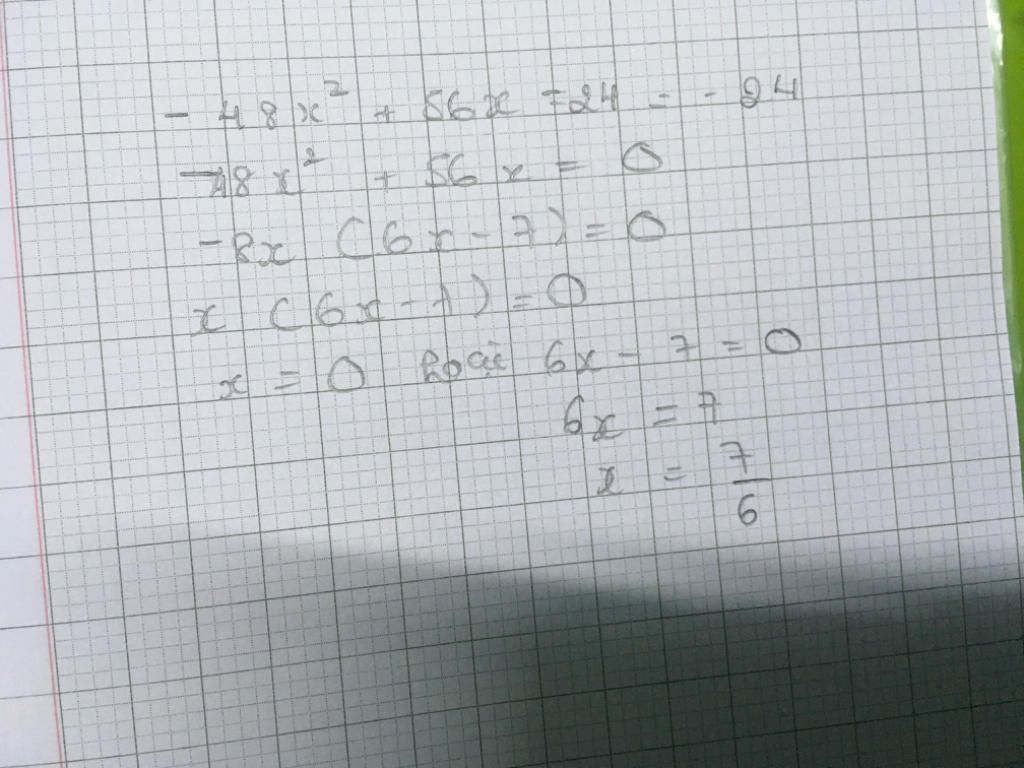 - 48x² + 56x - 24 = - 24
- 48x² + 56x = 0
- 8x (6x - 7) = 0
x (6x - 7) = 0
x = 0 hoặc 6x - 7 = 0
6x = 7
x = 7/6